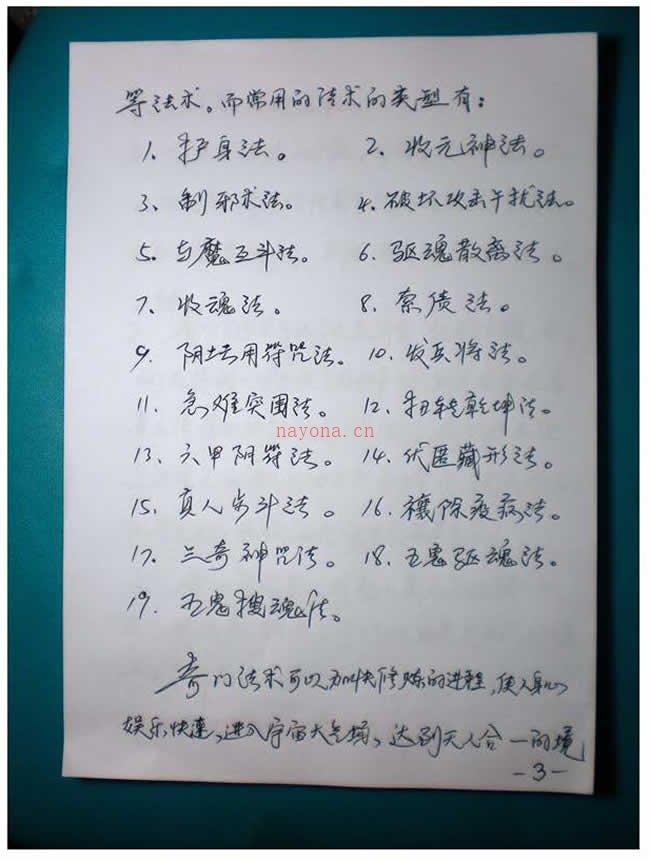 等法术。而常用的法术的类型有:
1、护身法。 2、收元神法。
3、制邪术法。 4、破坏攻击干扰法。
5、与魔互斗法。 6、驱魂散离法。
7、收魂法。 8、索债法。
9、阴坛用符咒法。 10、发兵将法。
11、急难突围法。 12、扭转乾坤法。
nayona.cn
13、六甲阴符法。 14、伏匿藏形法。
15、真人步斗法。 16、禳除疫病法。
17、三奇神咒法。 18、五鬼驱魂法。
19、五鬼搜魂法。
奇门法术可以加快修炼的进程,使人身心
娱乐快速,进入宇宙大气场,达到天人合一的境
-3-